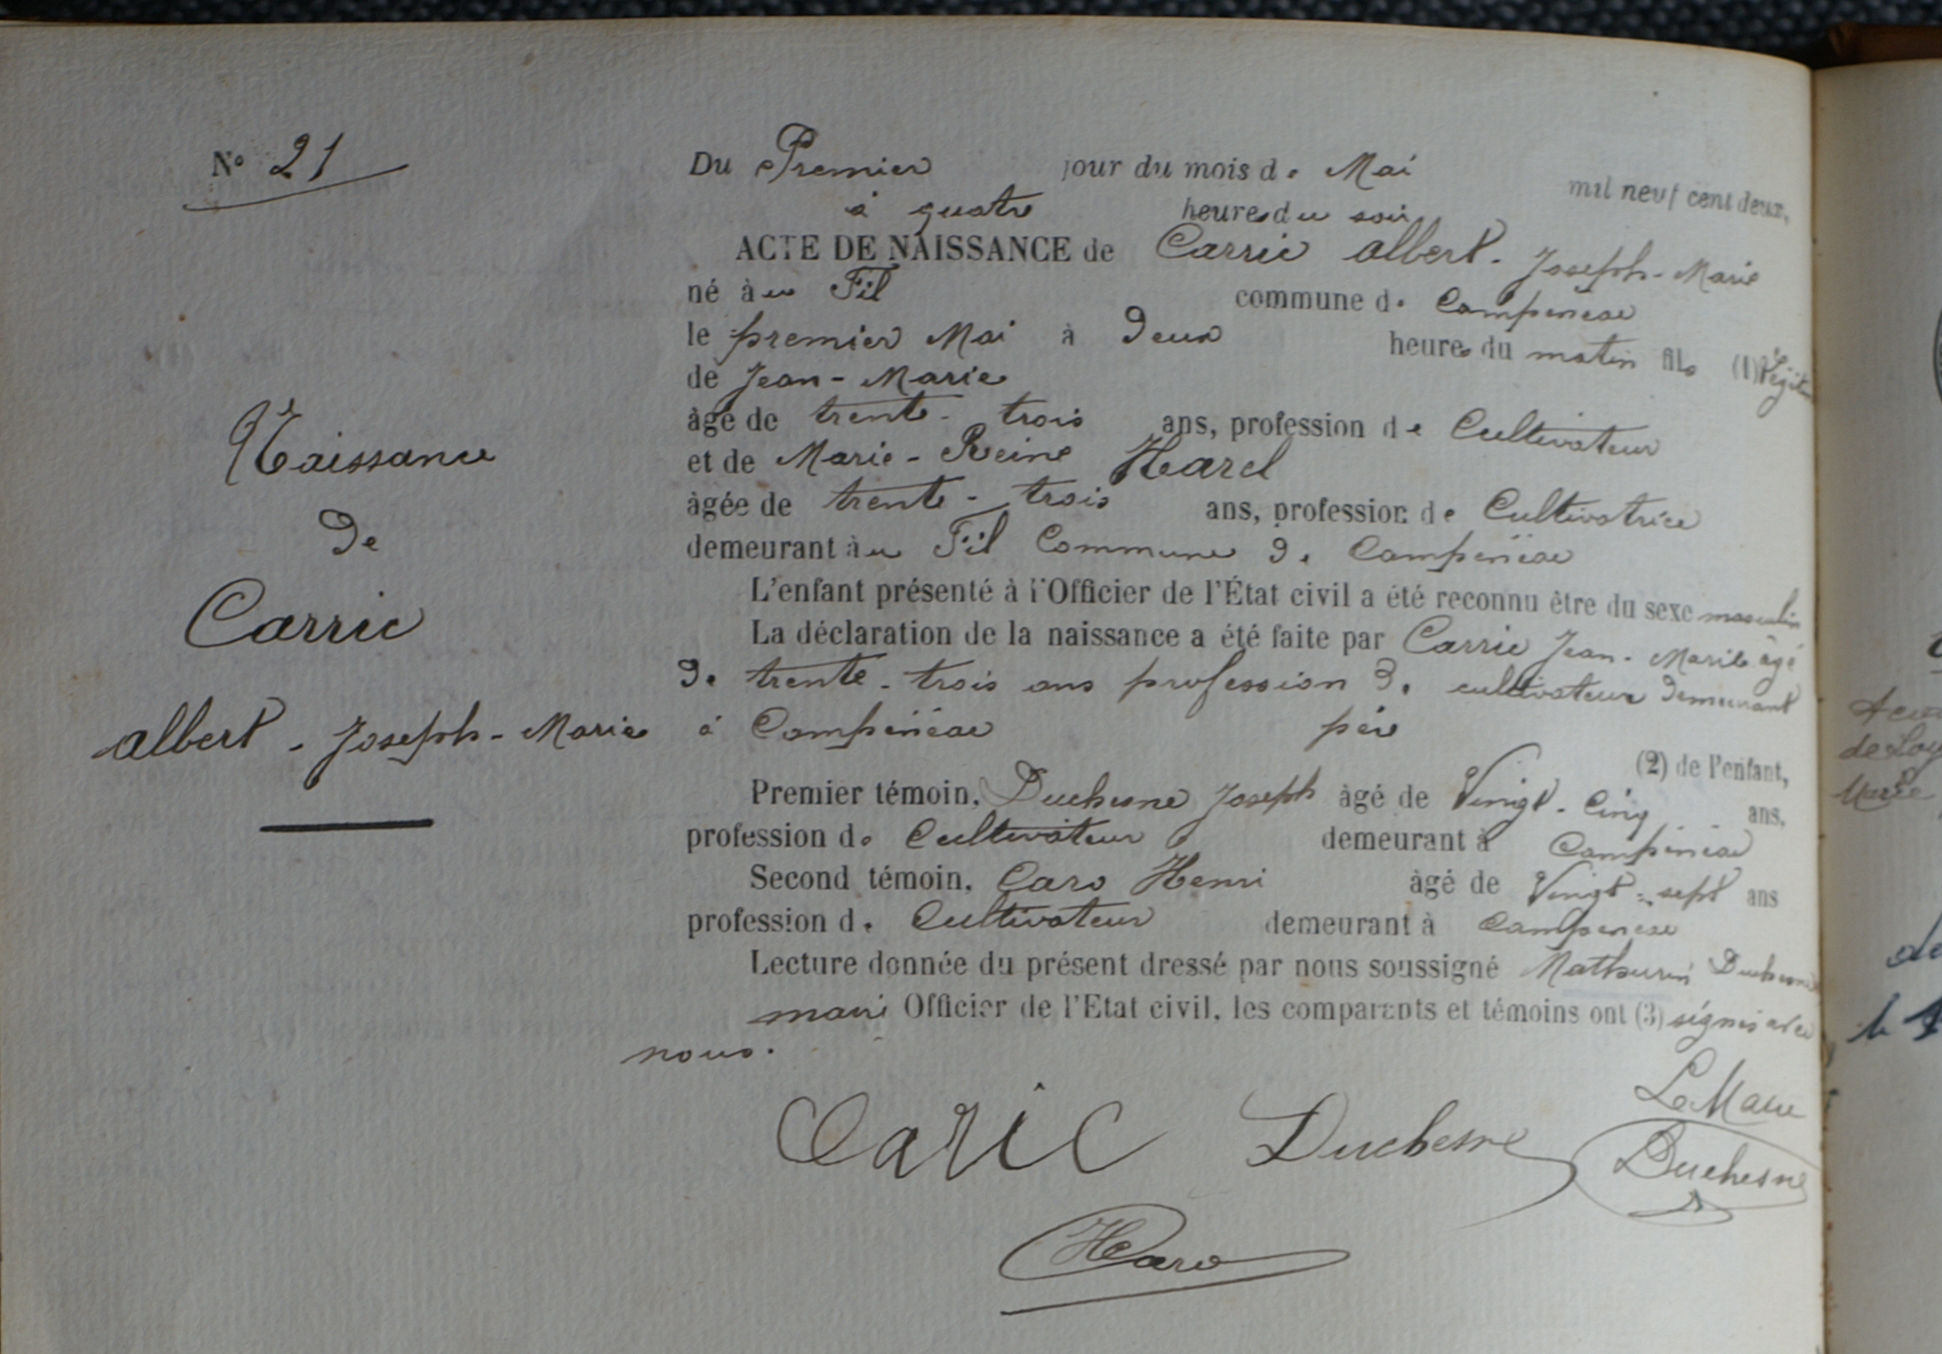 N° 21
Du Premier jour du mois de Mai mil neuf cent deux,
à quatre heures du soir
ACTE DE NAISSANCE de Carric albert - Joseph - Marie
né à au Fil commune de Campénéac
le premier Mai à Deux heures du matin fils (1)
de Jean - Marie
âgé de trente - trois ans, profession de Cultivateur
et de Marie - Reine Harel
âgée de trente - trois ans, profession de Cultivatrice
demeurant au Fil Commune De Campénéac
L'enfant présenté à l'Officier de l'État civil a été reconnu être du sexe masculin
La déclaration de la naissance a été faite par Carric Jean - Marie âgé
De trente - trois ans profession De cultivateur Demeurant
à Campénéac père
(2) de l'enfant,
Premier témoin, Duchesne Joseph âgé de Vingt - Cinq ans,
profession de Cultivateur demeurant à Campénéac
Second témoin, Caro Henri âgé de Vingt - sept ans
profession de Cultivateur demeurant à Campénéac
Lecture donnée du présent dressé par nous soussigné Mathurin Duchesne
maire Officier de l'Etat civil, les comparants et témoins ont (3) signés avec
nous.
Le Maire
Caric Duchesne Duchesne
HCaro
Naissance
De
Carric
albert - Joseph - Marie